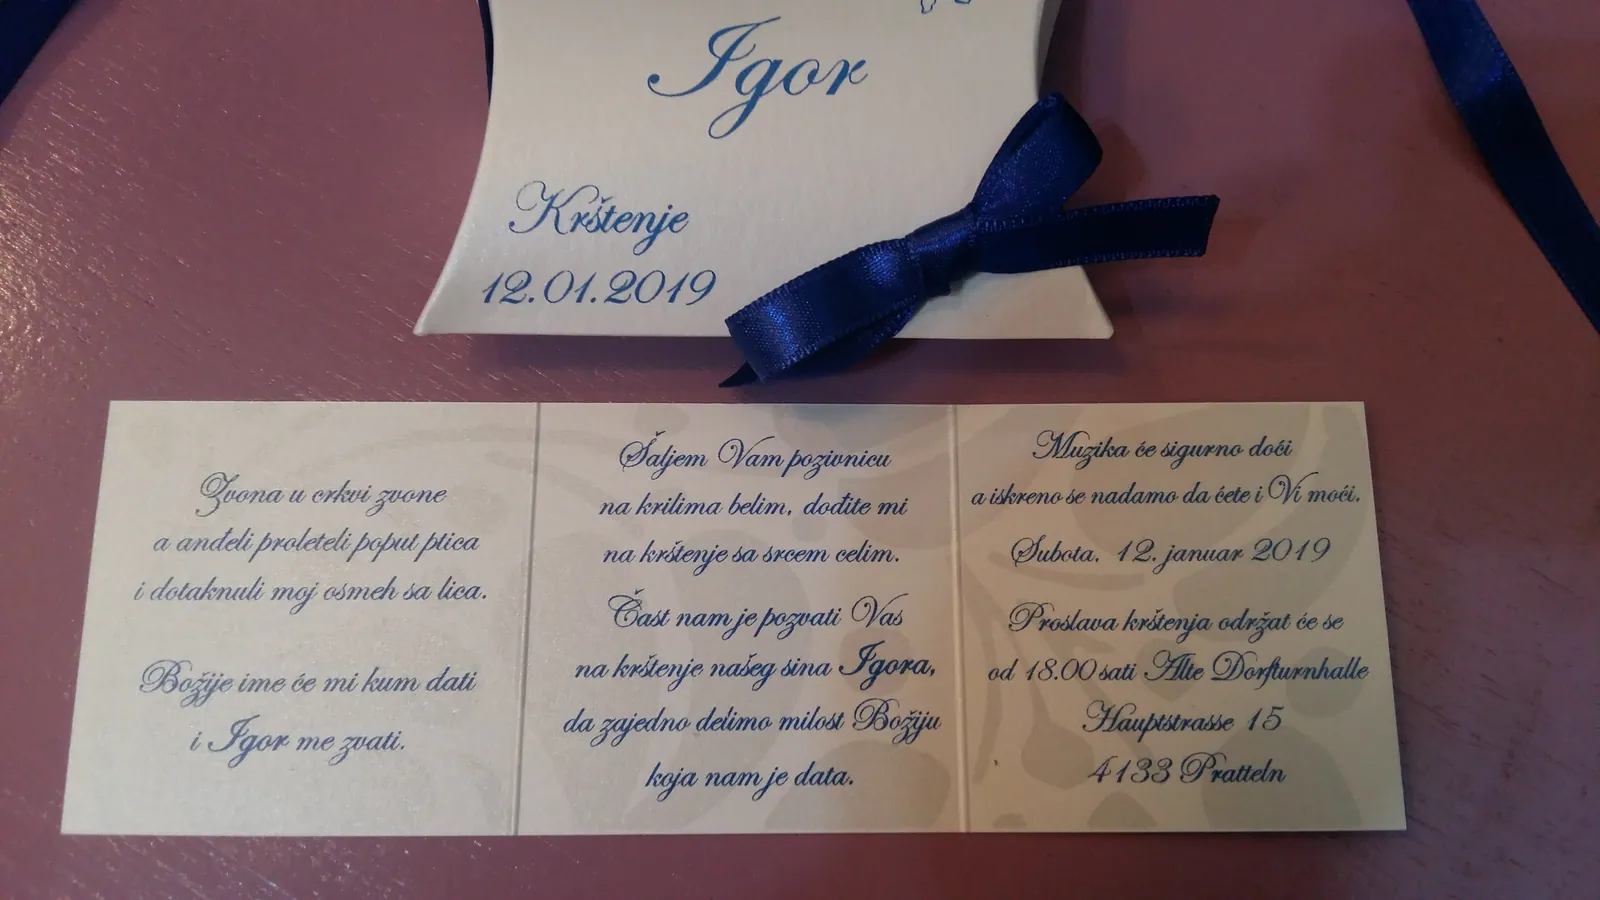 Igor
Krštenje
12.01.2019
Zvona u crkvi zvone
a anđeli proleteli poput ptica
i dotaknuli moj osmeh sa lica.
Božije ime će mi kum dati
i Igor me zvati.
Šaljem Vam pozivnicu
na krilima belim, dođite mi
na krštenje sa srcem celim.
Čast nam je pozvati Vas
na krštenje našeg sina Igora,
da zajedno delimo milost Božiju
koja nam je data.
Muzika će sigurno doći
a iskreno se nadamo da ćete i Vi moći.
Subota, 12. januar 2019
Proslava krštenja održat će se
od 18.00 sati Alte Dorfturnhalle
Hauptstrasse 15
4133 Pratteln